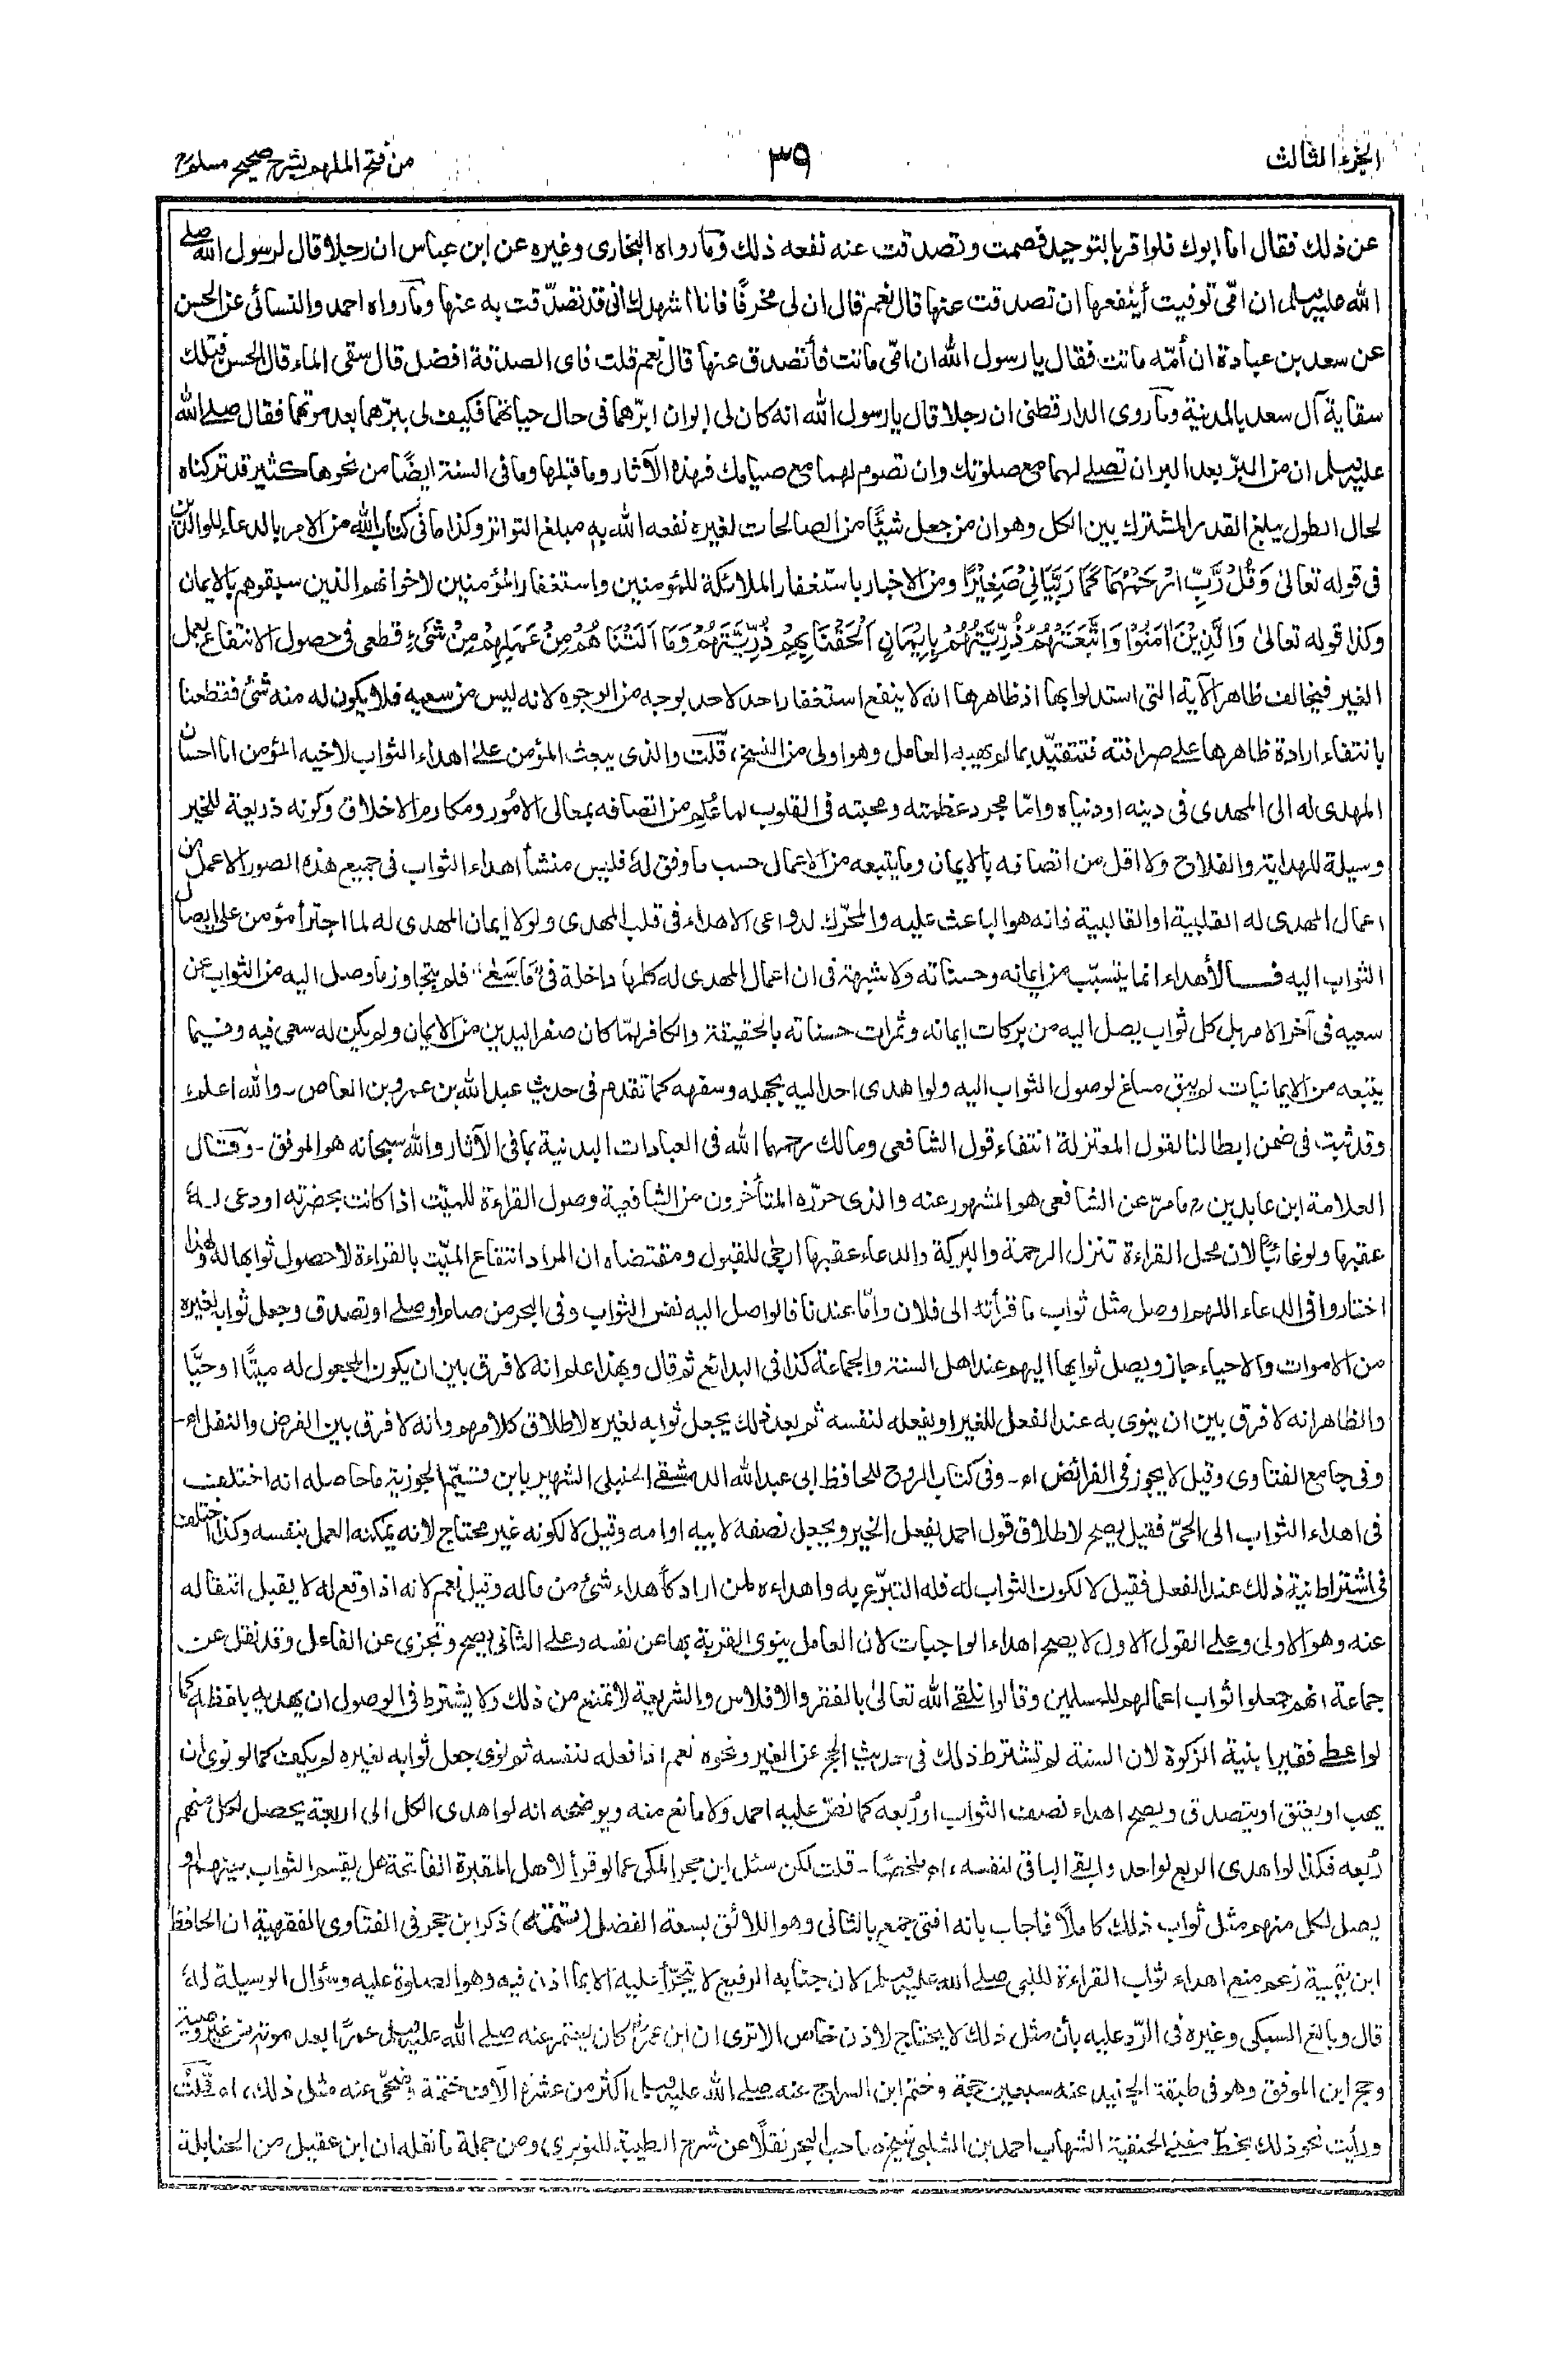 الجزء الثالث
٣٩
من فتح الملهم بشرح صحيح مسلم
عن ذلك فقال اما ابوك فلو اقر بالتوحيد فصمت وتصدقت عنه نفعه ذلك وما رواه البخارى وغيره عن ابن عباس ان رجلا قال لرسول الله صلى
الله عليه وسلم ان امّى توفيت أينفعها ان تصدقت عنها قال نعم قال ان لى مخرفًا فانا اشهدك انى قد تصدّقت به عنها وما رواه احمد والنسائى عن الحسن
عن سعد بن عبادة ان أمّه ماتت فقال يا رسول الله ان امّى ماتت فأتصدق عنها قال نعم قلت فاى الصدقة افضل قال سقى الماء قال الحسن فتلك
سقاية آل سعد بالمدينة وما روى الدارقطنى ان رجلا قال يا رسول الله انه كان لى ابوان ابرّهما فى حال حياتهما فكيف لى ببرّهما بعد موتهما فقال صلے الله
عليه وسلم ان من البرّ بعد البر ان تصلے لهما مع صلوتك وان تصوم لهما مع صيامك فهذه الآثار وما قبلها وما فى السنة ايضًا من نحوها كثير قد تركناه
لحال الطول يبلغ القدر المشترك بين الكل وهو ان من جعل شئًا من الصالحات لغيره نفعه الله به مبلغ التواتر وكذا ما فى كتاب الله من الامر بالدعاء للوالدين
فى قوله تعالىٰ وَقُلْ رَّبِّ ارْحَمْهُمَا كَمَا رَبَّيَانِىْ صَغِيْرًا ومن الاخبار باستغفار الملائكة للمؤمنين واستغفار المؤمنين لاخوانهم الذين سبقوهم بالايمان
وكذا قوله تعالىٰ وَالَّذِيْنَ اٰمَنُوْا وَاتَّبَعَتْهُمْ ذُرِّيَّتُهُمْ بِاِيْمَانٍ اَلْحَقْنَا بِهِمْ ذُرِّيَّتَهُمْ وَمَا اَلَتْنَاهُمْ مِنْ عَمَلِهِمْ مِنْ شَىْءٍ قطعى فى حصول الانتفاع بعمل
الغير فيخالف ظاهر الآية التى استدلوا بها اذ ظاهرها انه لا ينفع استغفار احد لاحد بوجه من الوجوه لانه ليس من سعيه فلا يكون له منه شئ فقطعنا
بانتفاء ارادة ظاهرها علے صرافته فتتقيّد بما لم يهبه العامل وهو اولى من النسخ، قلت والذى يبعث المؤمن علىٰ اهداء الثواب لاخيه المؤمن اما احسان
المهدى له الى المهدى فى دينه او دنياه وامّا مجرد عظمته ومحبته فى القلوب لما عُلِم من اتصافه بمعالى الامُور ومكارم الاخلاق وكونه ذريعة للخير
وسيلة للهداية والفلاح ولا اقل من اتصافه بالايمان وما يتبعه من الاعمال حسب ما وفق له فليس منشأ اهداء الثواب فى جميع هذه الصور الا عمل من
اعمال المهدى له القلبية او القالبية فانه هو الباعث عليه والمحرّك لدواعى الاهداء فى قلب المهدى ولولا ايمان المهدى له لما اجترأ مؤمن على ايصال
الثواب اليه فالأهداء انما يتسبّب من ايمانه وحسناته ولا شبهة فى ان اعمال المهدى له كلها داخلة فى "مَا سَعٰے" فلم يتجاوز ما وصل اليه من الثواب عن
سعيه فى آخر الامر بل كل ثواب يصل اليه من بركات ايمانه وثمرات حسناته بالحقيقة والكافر لمّا كان صفر اليدين من الايمان ولم يكن له سعى فيه وفيما
يتبعه من الايمانيات لم يبق مساغ لوصول الثواب اليه ولو اهدى احد اليه بجهله وسفهه كما تقدم فى حديث عبد الله بن عمرو بن العاص ـ والله اعلم
وقد ثبت فى ضمن ابطالنا لقول المعتزلة انتفاء قول الشافعى ومالك رحمهما الله فى العبادات البدنية بما فى الآثار والله سبحانه هو الموفق ـ وقال
العلامة ابن عابدين ؒ ما مرّ عن الشافعى هو المشهور عنه والذى حرّره المتأخرون من الشافعية وصول القراءة للميّت اذا كانت بحضرته او دعى له
عقبها ولو غائبًا لان محل القراءة تنزل الرحمة والبركة والدعاء عقبها ارجى للقبول ومقتضاه ان المراد انتفاع الميّت بالقراءة لا حصول ثوابها له ولهذا
اختاروا فى الدعاء اللهم اوصل مثل ثواب ما قرأته الى فلان وامّا عندنا فالواصل اليه نفس الثواب وفى البحر من صام او صلے او تصدق وجعل ثوابه لغيره
من الاموات والاحياء جاز ويصل ثوابها اليهم عند اهل السنة والجماعة كذا فى البدائع ثم قال وبهذا علم انه لا فرق بين ان يكون المجعول له ميتًا او حيًّا
والظاهر انه لا فرق بين ان ينوى به عند الفعل للغير او يفعله لنفسه ثم بعد ذلك يجعل ثوابه لغيره لاطلاق كلامهم وانه لا فرق بين الفرض والنفل اھ ـ
وفى جامع الفتاوى وقيل لا يجوز فى الفرائض اھ ـ وفى كتاب الروح للحافظ ابى عبد الله الدمشقے الحنبلى الشهير بابن قيّم الجوزية ما حاصله انه اختلف
فى اهداء الثواب الى الحىّ فقيل يصح لاطلاق قول احمد يفعل الخير ويجعل نصفه لابيه او امه وقيل لا لكونه غير محتاج لانه يمكنه العمل بنفسه وكذا اختلف
فى اشتراط نية ذلك عند الفعل فقيل لا لكون الثواب له فله التبرّع به واهداءه لمن اراد كأهداء شئ من ماله وقيل نعم لانه اذا وقع له لا يقبل انتقاله
عنه وهو الاولى وعلے القول الاول لا يصح اهداء الواجبات لان العامل ينوى القربة بها عن نفسه وعلے الثانى يصح وتجزى عن الفاعل وقد نقل عن
جماعة انهم جعلوا ثواب اعمالهم للمسلمين وقالوا نلقے الله تعالىٰ بالفقر والافلاس والشريعة لا تمنع من ذلك ولا يشترط فى الوصول ان يهديه بلفظه كما
لو اعطے فقيرا بنية الزكوة لان السنة لم تشترط ذلك فى حديث الحج عن الغير ونحوه نعم اذا فعله لنفسه ثم نوى جعل ثوابه لغيره لم يكف كما لو نوى ان
يهب او يعتق او يتصدق ويصح اهداء نصف الثواب او رُبعه كما نصّ عليه احمد ولا مانع منه ويوضحه انه لو اهدى الكل الى اربعة يحصل لكل منهم
رُبعه فكذا لو اهدى الربع لواحد وابقے الباقى لنفسه، اھ ملخصًا ـ قلت لكن سئل ابن حجر المكى عما لو قرأ لاهل المقبرة الفاتحة هل يقسم الثواب بينهم او
يصل لكل منهم مثل ثواب ذلك كاملًا فاجاب بانه افتى جمع بالثانى وهو اللائق بسعة الفضل (تتمّه) ذكر ابن حجر فى الفتاوى الفقهية ان الحافظ
ابن تيمية زعم منع اهداء ثواب القراءة للنبى صلے الله عليه وسلم لان جنابه الرفيع لا يتجرّأ عليه الا بما اذن فيه وهو الصلوة عليه وسؤال الوسيلة له
قال وبالغ السبكى وغيره فى الرّد عليه بأن مثل ذلك لا يحتاج لاذن خاص الا ترى ان ابن عمر كان يعتمر عنه صلے الله عليه وسلم عمرًا بعد موته من غير وصية
وحج ابن الموفق وهو فى طبقة الجنيد عنه سبعين حجة وختم ابن السراج عنه صلے الله عليه وسلم اكثر من عشرة الآف ختمة وضحّى عنه مثل ذلك، اھ قلت
ورأيت نحو ذلك بخط مفتے الحنفية الشهاب احمد بن الشلبى شيخ صاحب البحر نقلًا عن شرح الطيبة للنويرى ومن جملة ما نقله ان ابن عقيل من الحنابلة